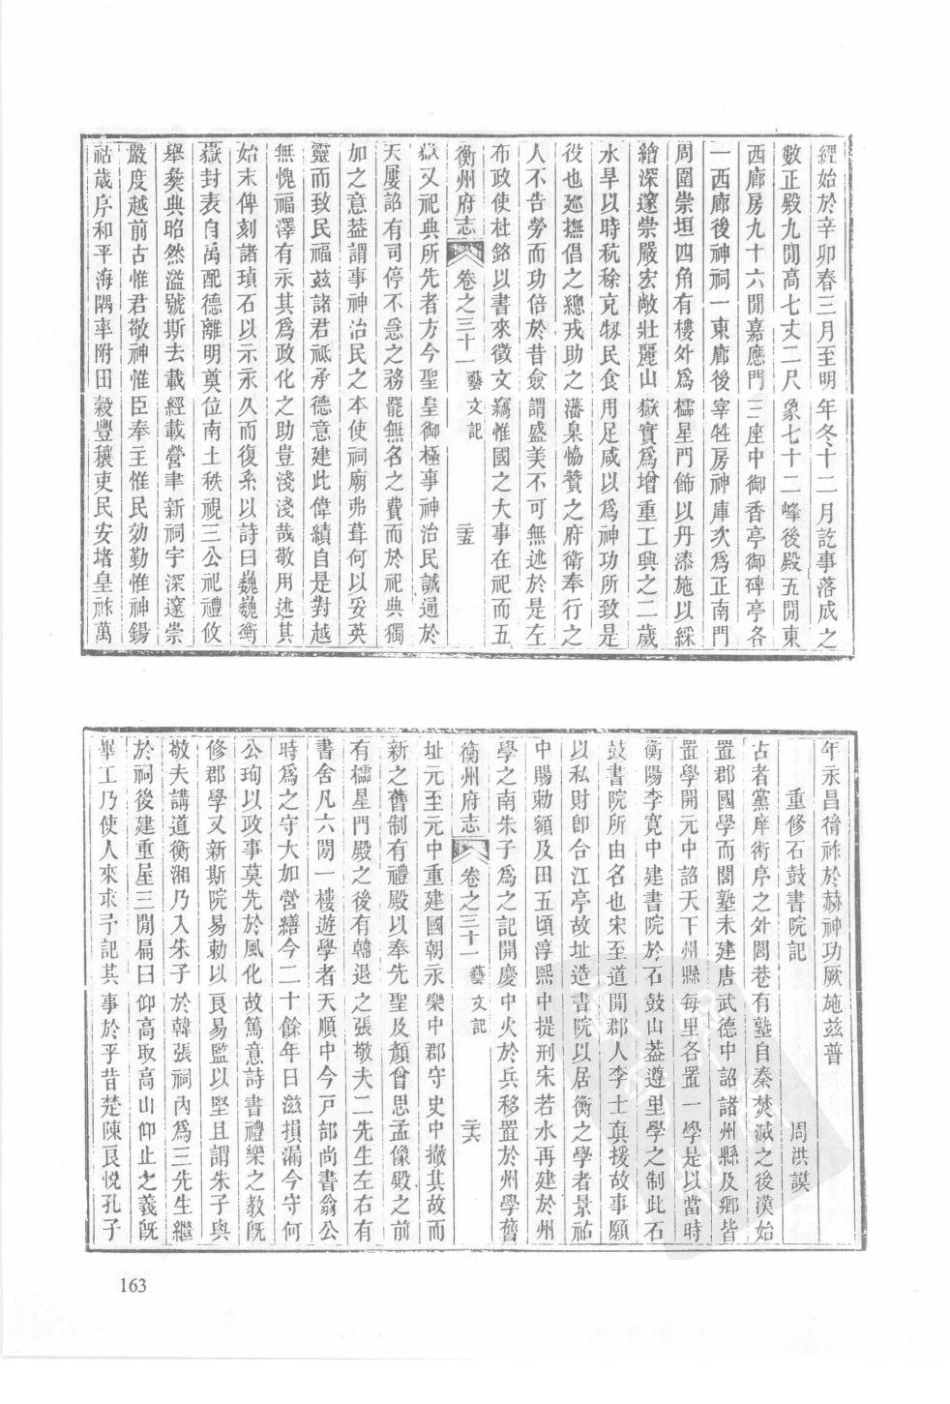 經始於辛卯春三月至明年冬十二月訖事落成之
數正殿九閒高七丈二尺象七十二峰後殿五閒東
西廊房九十六閒嘉應門三座中御香亭御碑亭各
一西廊後神祠一東廊後宰牲房神庫次爲正南門
周圍崇垣四角有樓外爲櫺星門飾以丹漆施以綵
繪深邃崇嚴宏敞壯麗山嶽實爲增重工興之二歲
水旱以時秔稌克牣民食用足咸以爲神功所致是
役也廵撫倡之總戎助之藩臬恊贊之府衛奉行之
人不告勞而功倍於昔僉謂盛美不可無述於是左
布政使杜銘以書來徵文竊惟國之大事在祀而五
衡州府志 卷之三十一 藝文記 三十五
嶽又祀典所先者方今聖皇御極事神治民誠通於
天屢詔有司停不急之務罷無名之費而於祀典獨
加之意葢謂事神治民之本使祠廟弗葺何以妥英
靈而致民福茲諸君祗承德意建此偉績自是對越
無愧福澤有永其爲政化之助豈淺淺哉敬用述其
始末俾刻諸瑱石以示永久而復系以詩曰巍巍衡
嶽封表自禹配德離明奠位南土秩視三公祀禮攸
舉粲典昭然溢號斯去載經載營聿新祠宇深邃崇
嚴度越前古惟君敬神惟臣奉主惟民効勤惟神錫
祜歲序和平海隅率附田穀豐穰吏民安堵皇祚萬
年永昌猗祚於赫神功厥施茲普
重修石鼓書院記 周洪謨
古者黨庠術序之外閭巷有塾自秦焚滅之後漢始
置郡國學而閭塾未建唐武德中詔諸州縣及鄉皆
置學開元中詔天下州縣每里各置一學是以當時
衡陽李寬中建書院於石鼓山葢遵里學之制此石
鼓書院所由名也宋至道閒郡人李士真援故事願
以私財卽合江亭故址造書院以居衡之學者景祐
中賜勅額及田五頃淳熙中提刑宋若水再建於州
學之南朱子爲之記開慶中火於兵移置於州學舊
衡州府志 卷之三十一 藝文記 三十六
址元至元中重建國朝永樂中郡守史中撤其故而
新之舊制有禮殿以奉先聖及顏曾思孟像殿之前
有櫺星門殿之後有韓退之張敬夫二先生左右有
書舍凡六閒一樓遊學者天順中今戸部尚書翁公
時爲之守大加營繕今二十餘年日滋損漏今守何
公珣以政事莫先於風化故篤意詩書禮樂之教旣
修郡學又新斯院易勅以良易監以堅且謂朱子與
敬夫講道衡湘乃入朱子於韓張祠內爲三先生繼
於祠後建重屋三閒扁曰仰高取高山仰止之義旣
畢工乃使人來求予記其事於乎昔楚陳良悅孔子
163